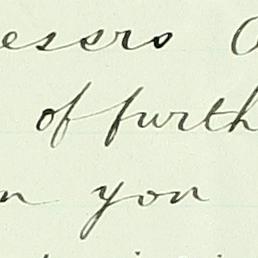 essrs
of furth
n you